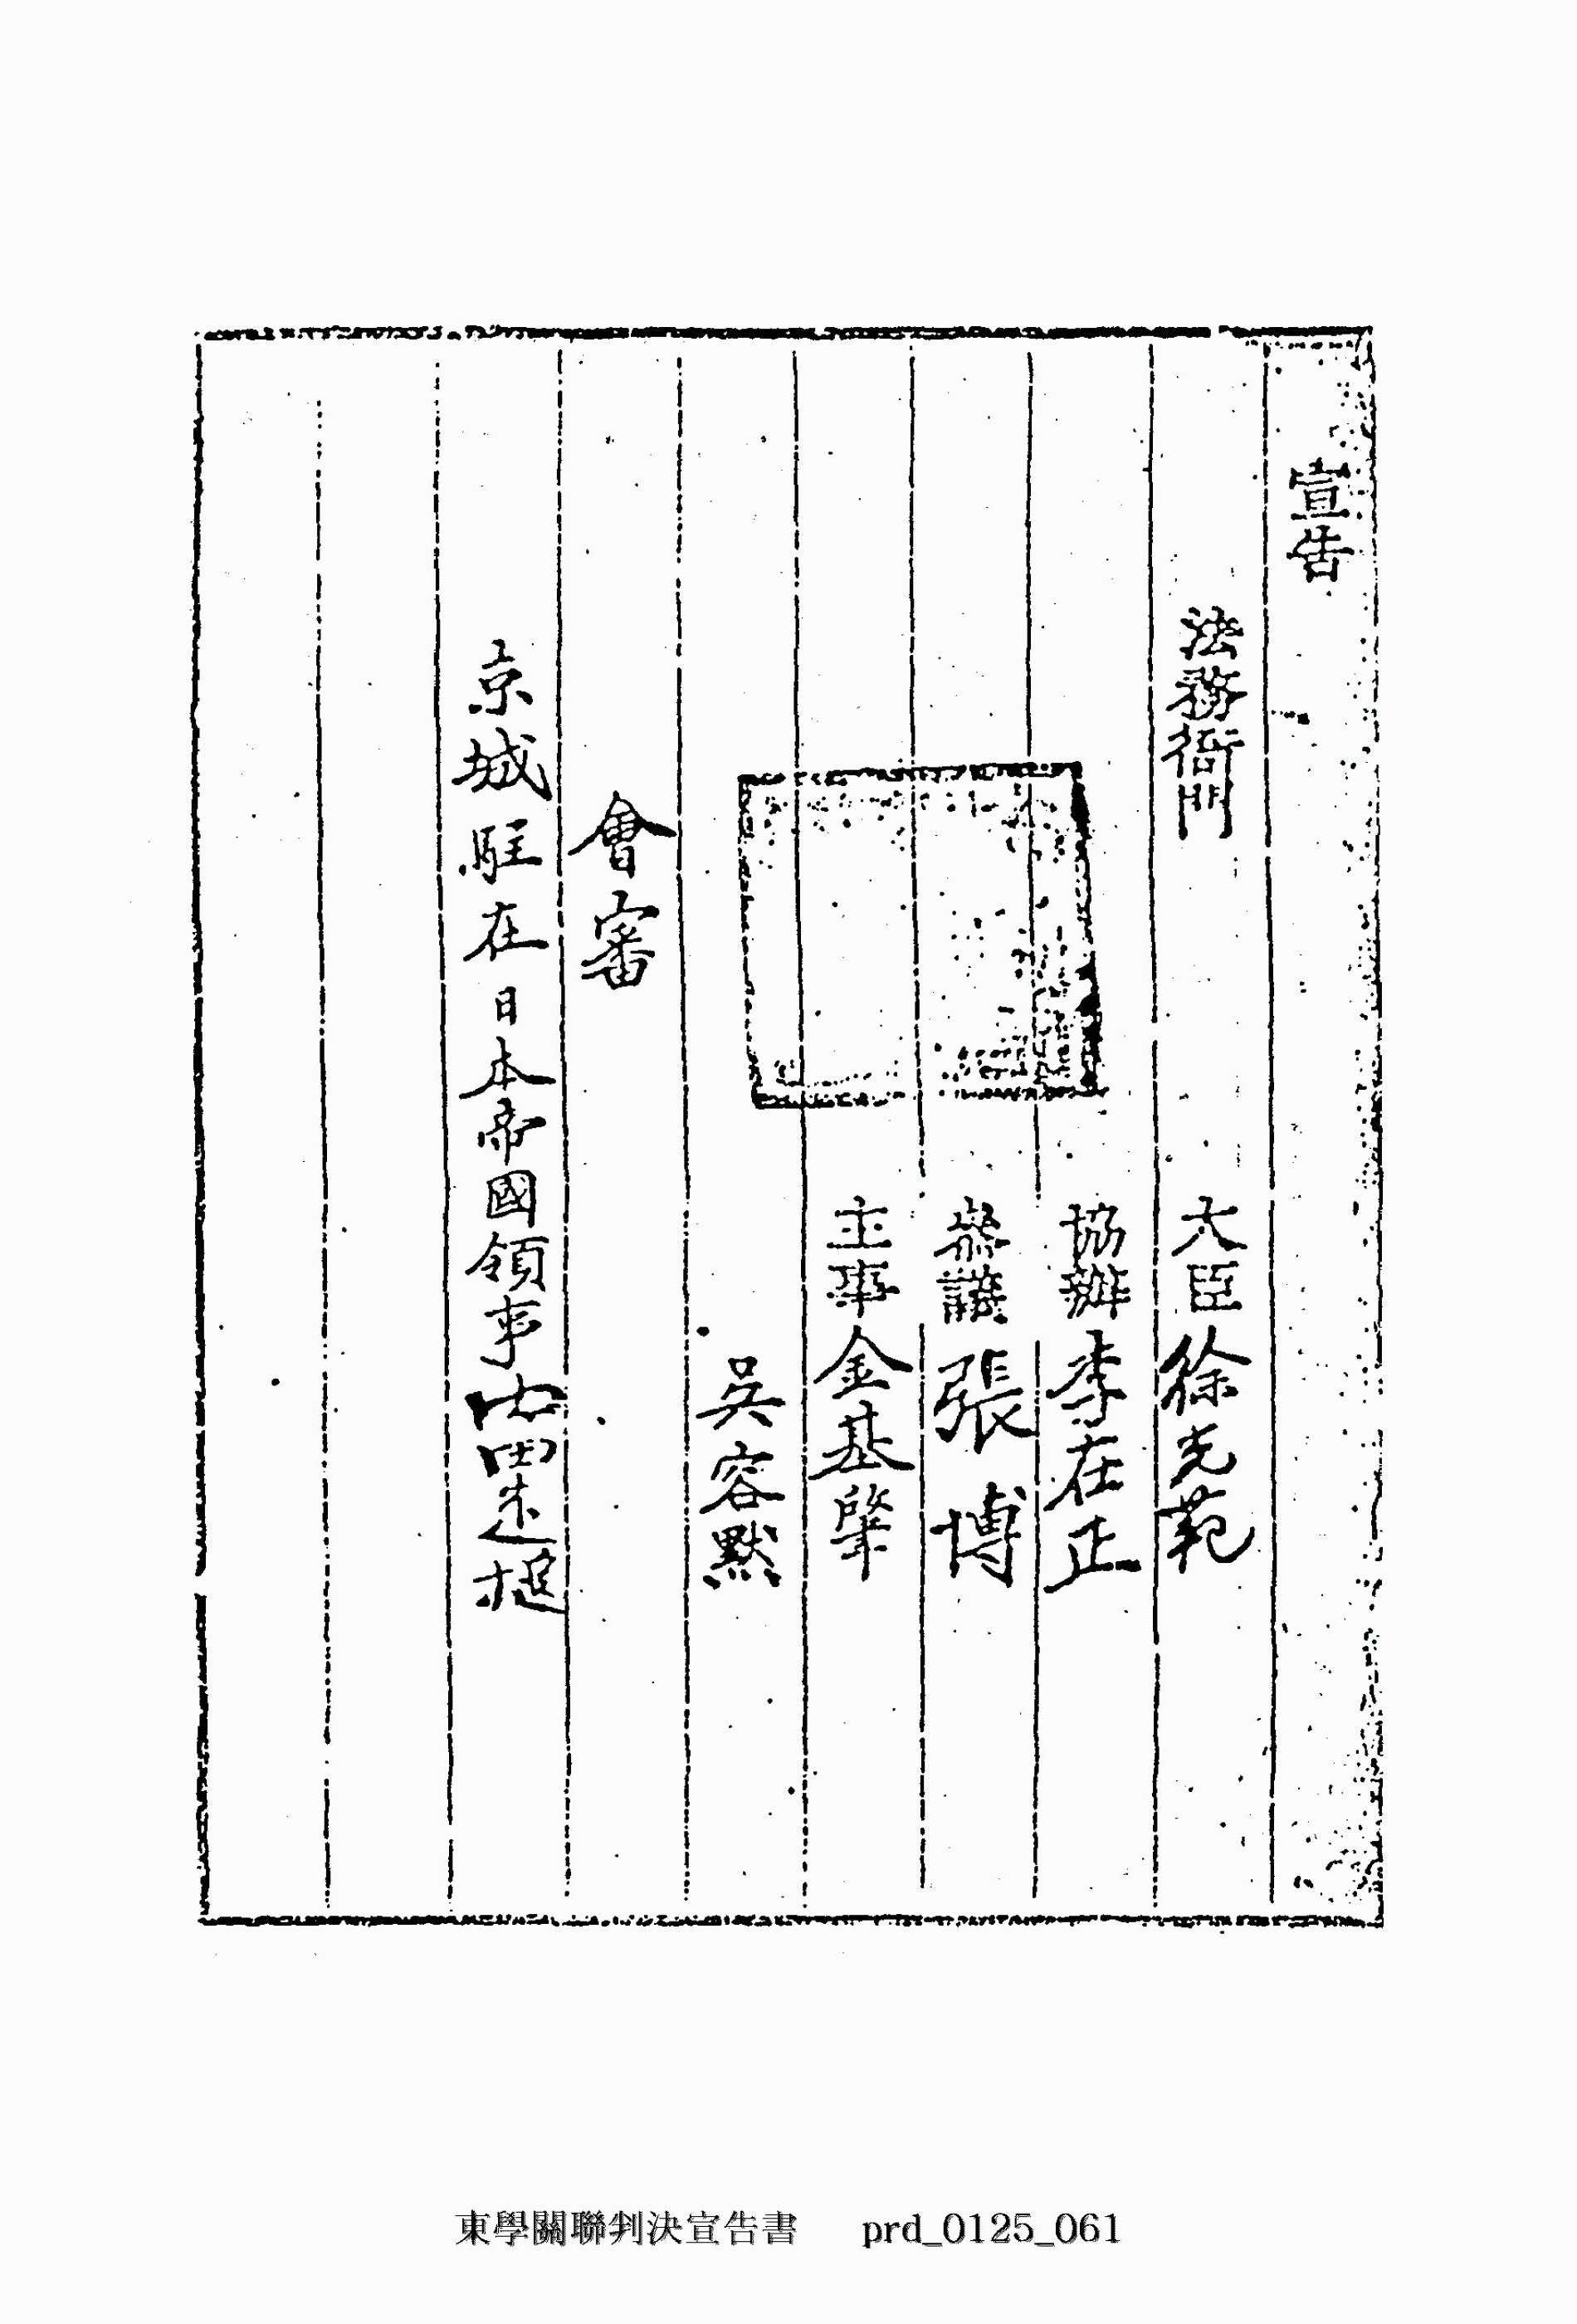 宣告
法務衙門 大臣 徐光範
協辦 李在正
參議 張博
主事 金基肇
吳容默
會審
京城駐在日本帝國領事 內田定槌
東學關聯判決宣告書 prd_0125_061